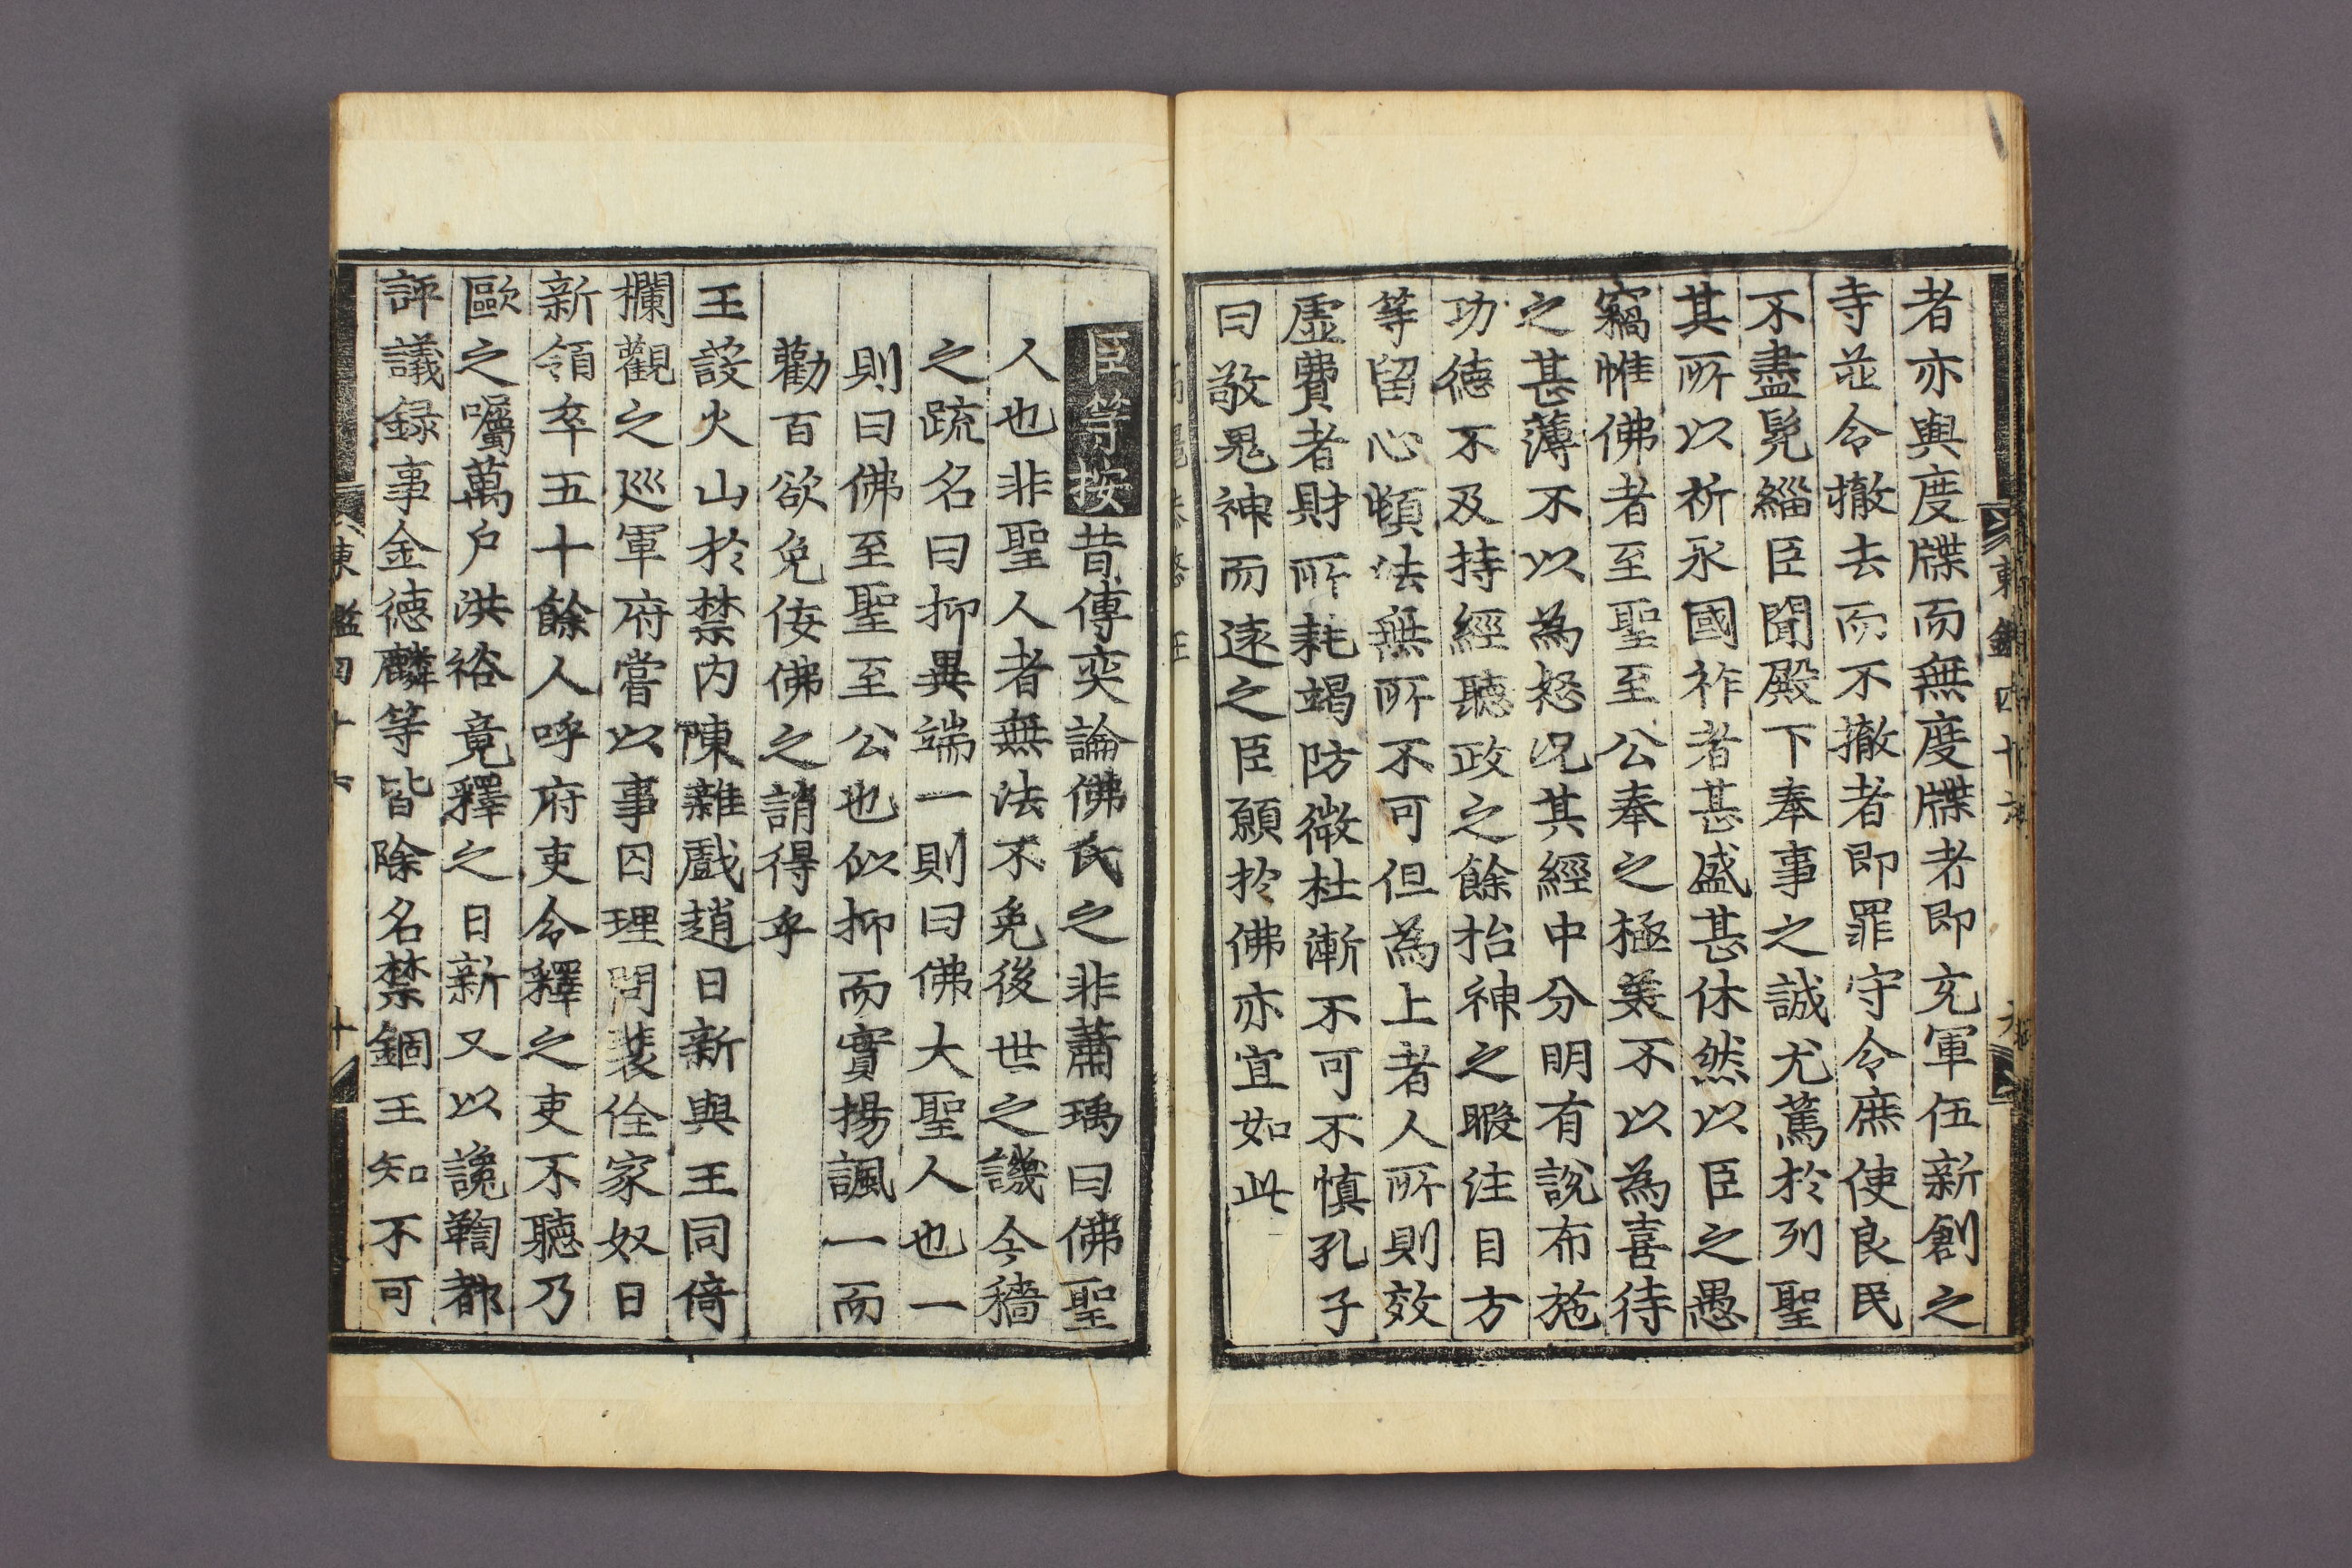 者亦與度牒而無度牒者即充軍伍新創之
寺並令撤去而不撤者即罪守令庶使良民
不盡髡緇臣聞殿下奉事之誠尤篤於列聖
其所以祈永國祚者甚盛甚休然以臣之愚
竊惟佛者至聖至公奉之極美不以為喜待
之甚薄不以為怒况其經中分明有說布施
功德不及持經聽政之餘怡神之暇注目方
等留心頓法無所不可但為上者人所則效
虛費者財所耗竭防微杜漸不可不慎孔子
曰敬鬼神而遠之臣願於佛亦宜如此
臣等按昔傅奕論佛氏之非蕭瑀曰佛聖
人也非聖人者無法不免後世之譏今穡
之疏名曰抑異端一則曰佛大聖人也一
則曰佛至聖至公也似抑而實揚諷一而
勸百欲免佞佛之誚得乎
王設火山於禁內陳雜戲趙日新與王同倚
欄觀之巡軍府嘗以事囚理問裴佺家奴日
新領卒五十餘人呼府吏令釋之吏不聽乃
歐之囑萬戶洪裕竟釋之日新又以讒鞫都
評議録事金德麟等皆除名禁錮王知不可
東鑑四十六
十